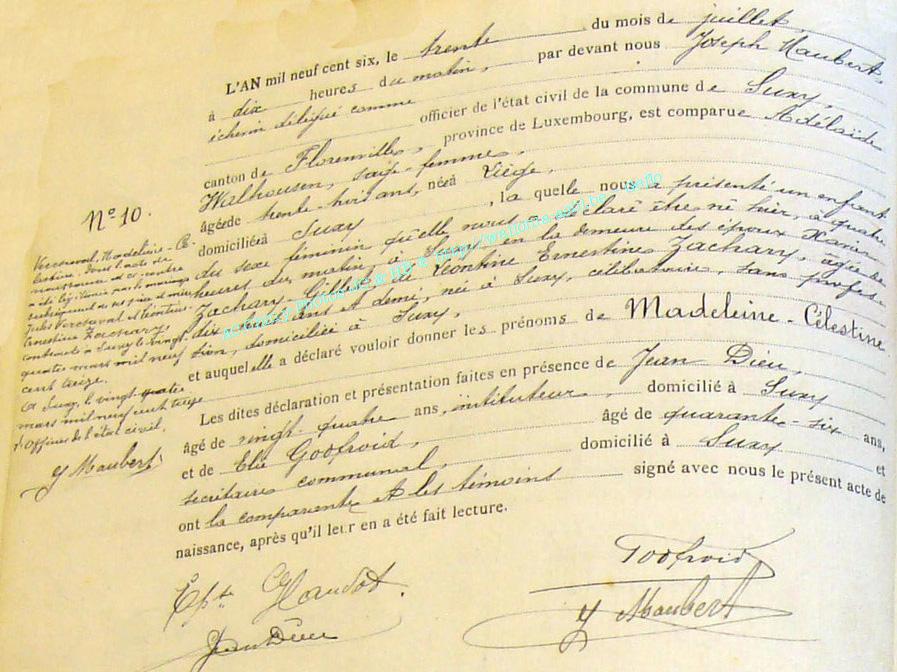 L'AN mil neuf cent six, le trente du mois de juillet,
à dix heures du matin, par devant nous Joseph Maubert,
échevin délégué comme officier de l'état civil de la commune de Suxy,
canton de Florenville, province de Luxembourg, est comparue Adélaïde
Walhousen, sage-femme,
âgée de trente-huit ans, née à Liège,
domiciliée à Suxy, laquelle nous a présenté un enfant
du sexe féminin qu'elle nous a déclaré être né hier, à quatre
heures du matin, à Suxy en la demeure des époux Xavier
Zachary-Gillet, de Léontine Ernestine Zachary, âgée de
dix ans et demi, née à Suxy, célibataire, sans profes-
sion, domiciliée à Suxy,
et auquel elle a déclaré vouloir donner les prénoms de Madeleine-Célestine
Les dites déclaration et présentation faites en présence de Jean Dieu,
âgé de vingt quatre ans, instituteur, domicilié à Suxy
et de Elie Goffroid, âgé de quarante-six ans,
secrétaire communal, domicilié à Suxy et
ont la comparante et les témoins signé avec nous le présent acte de
naissance, après qu'il leur en a été fait lecture.
N° 10.
Madeleine-Cé-
lestine, dont l'acte de
naissance est ci-contre
a été légitimée par le mariage
subséquent de ses père et mère
Jules et Léontine
Ernestine Zachary,
contracté à Suxy le vingt
quatre mars mil neuf
cent treize.
A Suxy, le vingt quatre
mars mil neuf cent treize
L'Officier de l'état civil,
J Maubert
Goffroid
Jean Dieu
J Maubert